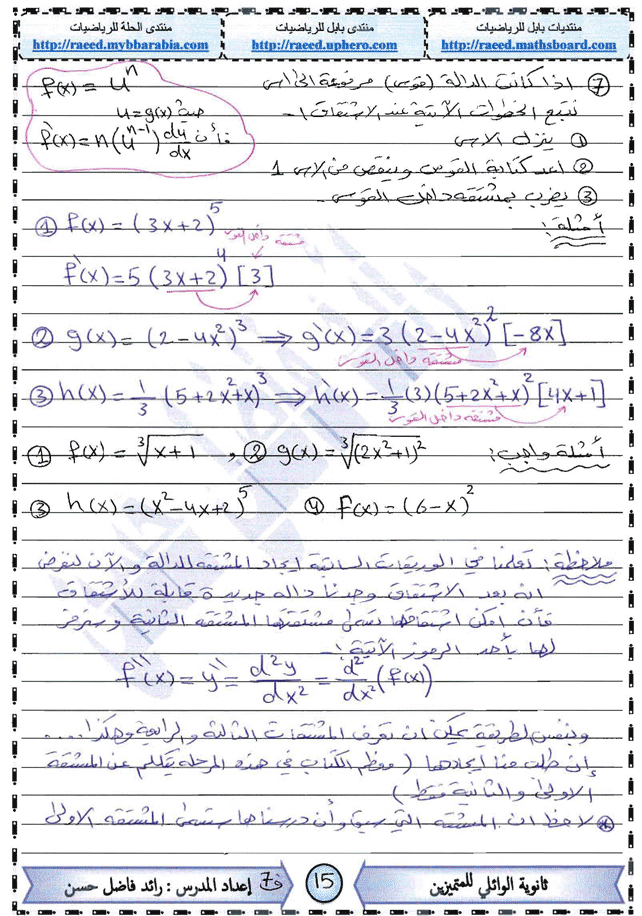 منتديات بابل للرياضيات
http://raeed.mathsboard.com
منتدى بابل للرياضيات
http://raeed.uphero.com
منتدى الحلة للرياضيات
http://raeed.mybbarabia.com
⑦ اذا كانت الدالة (قوس) مرفوعة الى اس
نتبع الخطوات الآتية عند الاشتقاق :-
① ينزل الاس
② اعد كتابة القوس وينقص من الاس 1
③ يضرب بمشتقة داخل القوس.
f(x) = uⁿ
حيث u=g(x)
فأن f'(x)=n(uⁿ⁻¹) du/dx
أمثلة :
① f(x) = (3x+2)⁵
مشتقة داخل القوس
f'(x)=5(3x+2)⁴[3]
② g(x)=(2-4x²)³ ⟹ g'(x)=3(2-4x²)²[-8x]
مشتقة داخل القوس
③ h(x)=1/3 (5+2x²+x)³ ⟹ h'(x)=1/3(3)(5+2x²+x)²[4x+1]
مشتقة داخل القوس
أمثلة واجب :
① f(x) = ∛(x+1) , ② g(x)=∛((2x²+1)²)
③ h(x)=(x²-4x+2)⁵ ④ f(x)=(6-x)²
ملاحظة : تعلمنا في الوريقات السابقة ايجاد المشتقة للدالة والآن لنفرض
انه بعد الاشتقاق وجدنا دالة جديدة قابلة للأشتقاق
فأن امكن اشتقاقها تسمى مشتقتها المشتقة الثانية وسيرمز
لها بأحد الرموز الآتية :-
f''(x) = y'' = d²y/dx² = d²/dx² (f(x))
وبنفس الطريقة يمكن ان تعرف المشتقات الثالثة والرابعة وهكذا....
إن طلب منا ايجادها ( معظم الكتاب في هذه المرحلة يتكلم عن المشتقة
الاولى والثانية فقط )
* لاحظ ان المشتقة التي سبق وأن درسناها ستسمى المشتقة الاولى
ثانوية الوائلي للمتميزين
15
إعداد المدرس : رائد فاضل حسن